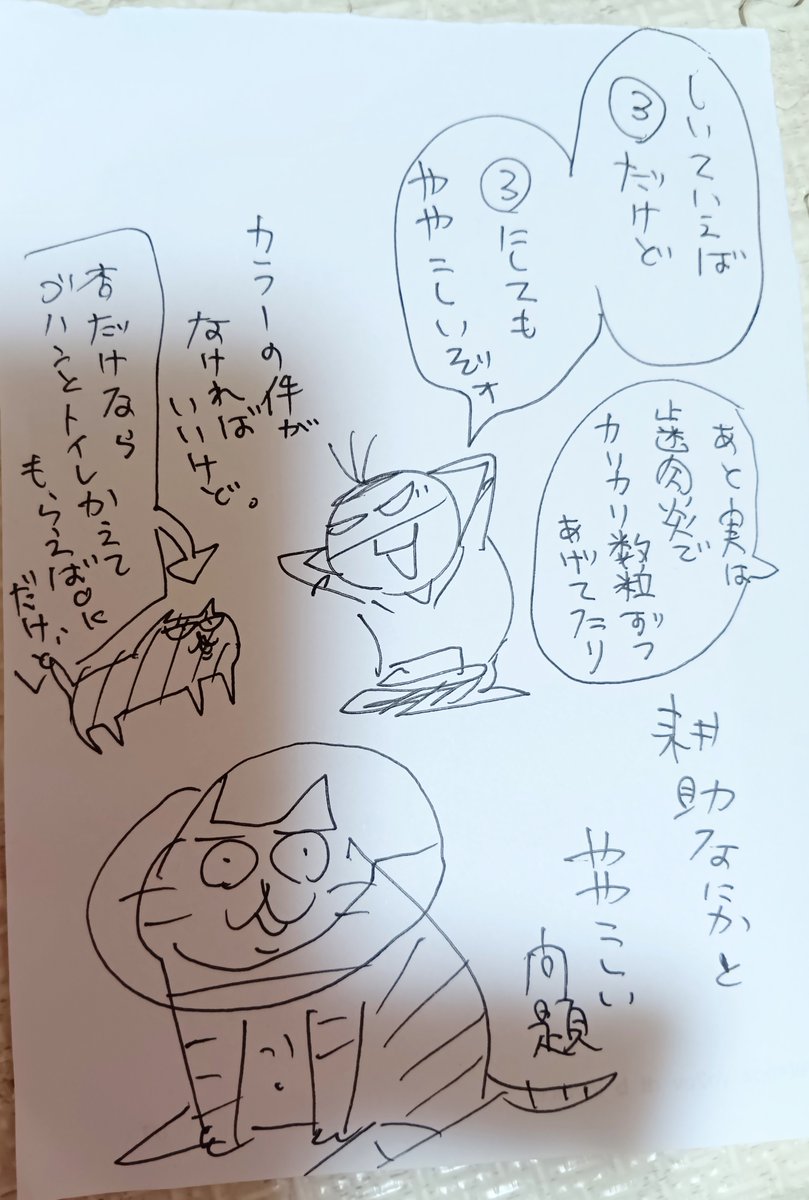 しいていえば
③だけど
③にしても
ややこしいぞォ
あと実は
歯肉炎で
カリカリ数粒ずつ
あげてたり
カラーの件が
なければ
いいけど。
杏だけなら
ゴハンとトイレかえて
もらえばOK
だけど、
耕助なにかと
ややこしい
問題